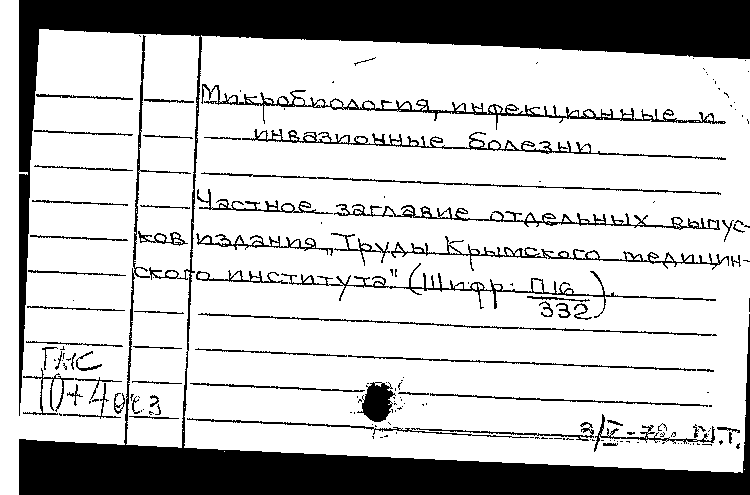 Микробиология, инфекционные и
инвазионные болезни.
Частное заглавие отдельных выпус-
ков издания „Труды Крымского медицин-
ского института" (Шифр: П16
332).
10+4
3/V-78. М.Т.